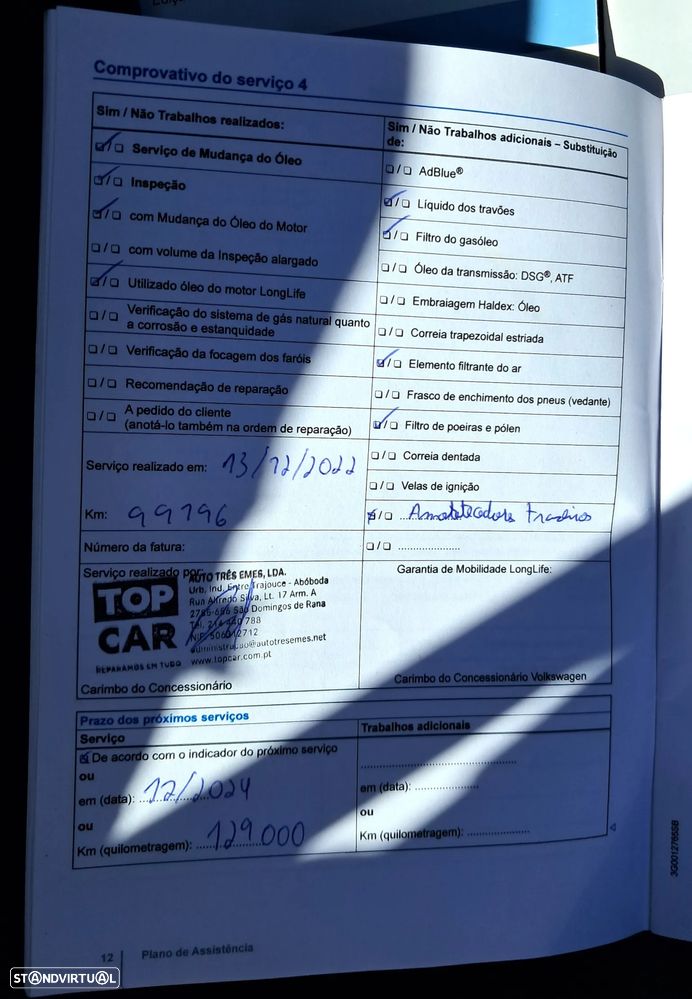 Comprovativo do serviço 4
Sim / Não Trabalhos realizados:
☑/❑ Serviço de Mudança do Óleo
☑/❑ Inspeção
☑/❑ com Mudança do Óleo do Motor
❑/❑ com volume da Inspeção alargado
☑/❑ Utilizado óleo do motor LongLife
❑/❑ Verificação do sistema de gás natural quanto
a corrosão e estanquidade
❑/❑ Verificação da focagem dos faróis
❑/❑ Recomendação de reparação
❑/❑ A pedido do cliente
(anotá-lo também na ordem de reparação)
Serviço realizado em: 13/12/2022
Km: 99796
Número da fatura:
Serviço realizado por:
TOP
CAR
REPARAMOS EM TUDO
AUTO TRÊS EMES, LDA.
Urb. Ind. Entre Trajouce - Abóboda
Rua Alfredo Silva, Lt. 17 Arm. A
2785-686 São Domingos de Rana
Tel. 214 440 788
administracao@autotresemes.net
www.topcar.com.pt
Carimbo do Concessionário
Sim / Não Trabalhos adicionais – Substituição
de:
❑/❑ AdBlue®
☑/❑ Líquido dos travões
☑/❑ Filtro do gasóleo
❑/❑ Óleo da transmissão: DSG®, ATF
❑/❑ Embraiagem Haldex: Óleo
❑/❑ Correia trapezoidal estriada
☑/❑ Elemento filtrante do ar
❑/❑ Frasco de enchimento dos pneus (vedante)
☑/❑ Filtro de poeiras e pólen
❑/❑ Correia dentada
❑/❑ Velas de ignição
☑/❑ ...
❑/❑ .....................
Garantia de Mobilidade LongLife:
Carimbo do Concessionário Volkswagen
Prazo dos próximos serviços
Serviço
☑ De acordo com o indicador do próximo serviço
ou
em (data): 12/2024
ou
Km (quilometragem): 129.000
Trabalhos adicionais
.....................
em (data): .....................
ou
Km (quilometragem): .....................
12 Plano de Assistência
3G0012765SB
STANDVIRTUAL